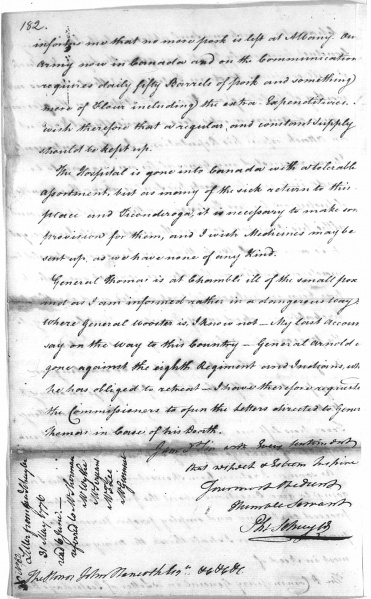 182.
informs me that no more pork is left at Albany Our
Army now in Canada and on the Communication
requires daily fifty Barrels of pork and something
more of Flour including the extra Expenditures. I
wish therefore that a regular, and constant Supply
should be kept up.
The Hospital is gone into Canada with a tolerable
Assortment, but as many of the sick return to this
place and Ticonderoga, it is necessary to make some
provision for them, and I wish Medicines may be
sent up, as we have none of any Kind.
General Thomas is at Chambli ill of the small pox
and as I am informed rather in a dangerous way
where General Wooster is, I know not – My last Accounts
say on the way to this Country – General Arnold is
gone against the eighth Regiment and Indians, who
he has obliged to retreat – I have therefore requested
the Commissioners to open the Letters directed to General
Thomas in Case of his Death.
I am Sir with Every Sentiment
that respect & Esteem Inspire
Your most Obedient
Humble Servant
Ph: Schuyler
The Honor: John Hancock Esqr. &c &c &c
Letter from Genl Schuyler
31 May 1776
read 6 June
referred to Mr
Mr Wythe
Mr
Mr
Mr